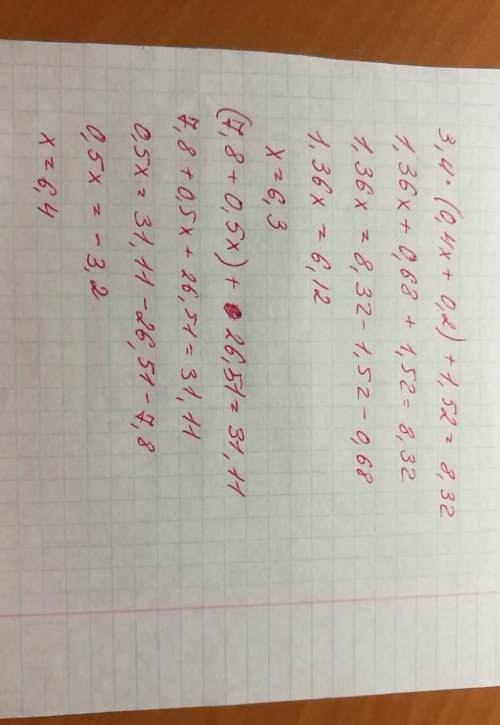 3,4·(0,4x + 0,2) + 1,52 = 8,32
1,36x + 0,68 + 1,52 = 8,32
1,36x = 8,32 - 1,52 - 0,68
1,36x = 6,12
x = 6,3
(7,8 + 0,5x) + 26,51 = 31,11
7,8 + 0,5x + 26,51 = 31,11
0,5x = 31,11 - 26,51 - 7,8
0,5x = -3,2
x = 6,4